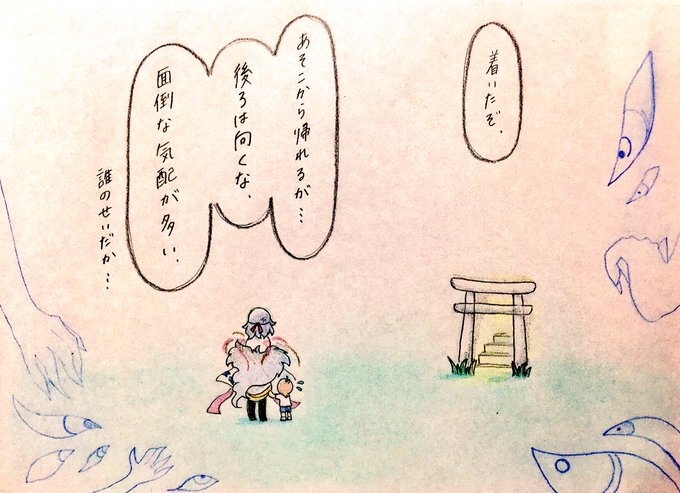 着いたぞ、
あそこから帰れるが…
後ろは向くな、
面倒な気配が多い、
誰のせいだか…